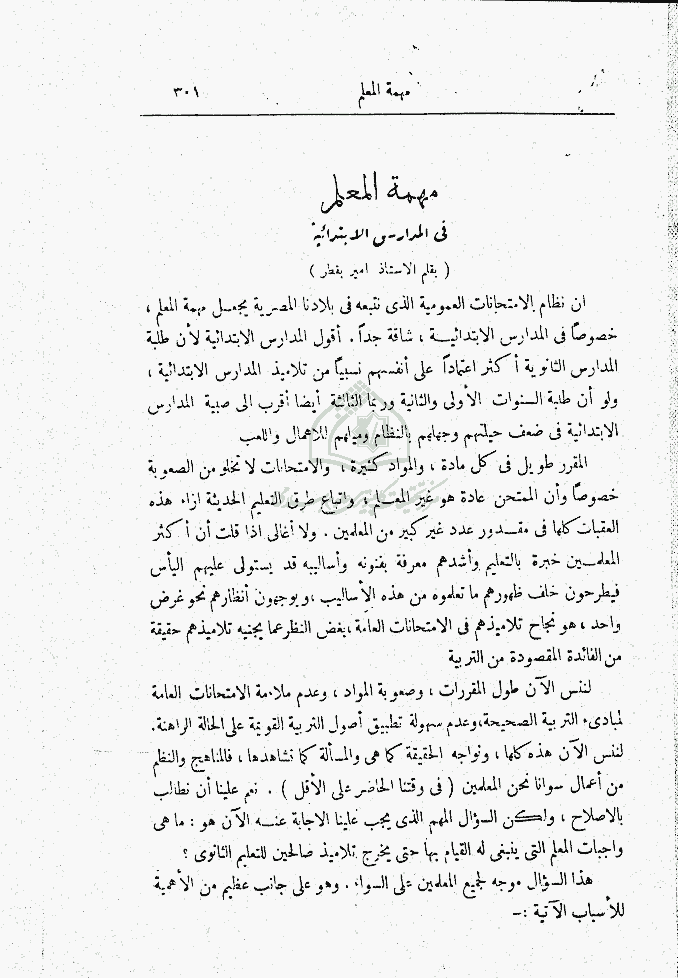 مهمة المعلم ٣٠١
مهمة المعلم
فى المدارس الابتدائية
( بقلم الاستاذ امير بقطر )
ان نظام الامتحانات العمومية الذى نتبعه فى بلادنا المصرية يجعل مهمة المعلم ،
خصوصاً فى المدارس الابتدائية ، شاقة جداً . أقول المدارس الابتدائية لأن طلبة
المدارس الثانوية أكثر اعتماداً على أنفسهم نسبياً من تلاميذ المدارس الابتدائية ،
ولو أن طلبة السنوات الأولى والثانية وربما الثالثة أيضا أقرب الى صبية المدارس
الابتدائية فى ضعف حيلتهم وجهلهم بالنظام وميلهم للاهمال واللعب
المقرر طويل فى كل مادة ، والمواد كثيرة ، والامتحانات لا تخلو من الصعوبة
خصوصاً وأن الممتحن عادة هو غير المعلم ، واتباع طرق التعليم الحديثة ازاء هذه
العقبات كلها فى مقدور عدد غير كبير من المعلمين . ولا أغالى اذا قلت أن أكثر
المعلمين خبرة بالتعليم وأشدهم معرفة بفنونه وأساليبه قد يستولى عليهم اليأس
فيطرحون خلف ظهورهم ما تعلموه من هذه الأساليب ، ويوجهون أنظارهم نحو غرض
واحد ، هو نجاح تلاميذهم فى الامتحانات العامة ، بغض النظر عما يجنيه تلاميذهم حقيقة
من الفائدة المقصودة من التربية
لننس الآن طول المقررات ، وصعوبة المواد ، وعدم ملاءمة الامتحانات العامة
لمبادىء التربية الصحيحة ، وعدم سهولة تطبيق أصول التربية القويمة على الحالة الراهنة .
لننس الآن هذه كلها ، ونواجه الحقيقة كما هى والمسألة كما نشاهدها ، فالمناهج والنظم
من أعمال سوانا نحن المعلمين ( فى وقتنا الحاضر على الأقل ) . نعم علينا أن نطالب
بالاصلاح ، ولكن السؤال المهم الذى يجب علينا الاجابة عنه الآن هو : ما هى
واجبات المعلم التى ينبغى له القيام بها حتى يخرج تلاميذ صالحين للتعليم الثانوى ؟
هذا السؤال موجه لجميع المعلمين على السواء . وهو على جانب عظيم من الأهمية
للأسباب الآتية :—